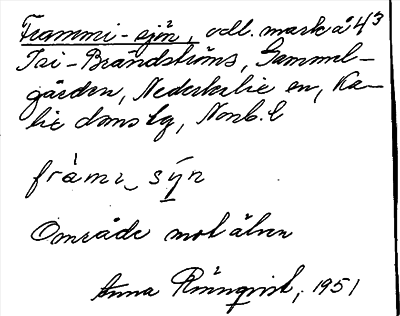 Frammi-sjön, odl. mark å 43
Isi-Brändströms, Gammel-
gården, Nederkalix en, Ka-
lix domslg, Nonb. l
främi_ sýn
Område mot älven
Anna Rönnqvist, 1951